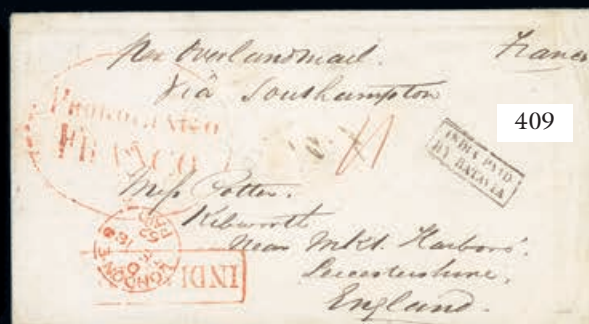 Per Overland mail. Franco
Via Southampton
PROBOLINGO
FRANCO
409
INDIA PAID
BY BATAVIA
Miss Potter.
Kibworth
Near Mkt. Harboro'.
Leicestershire.
England.
LONDON
PAID
52
INDI